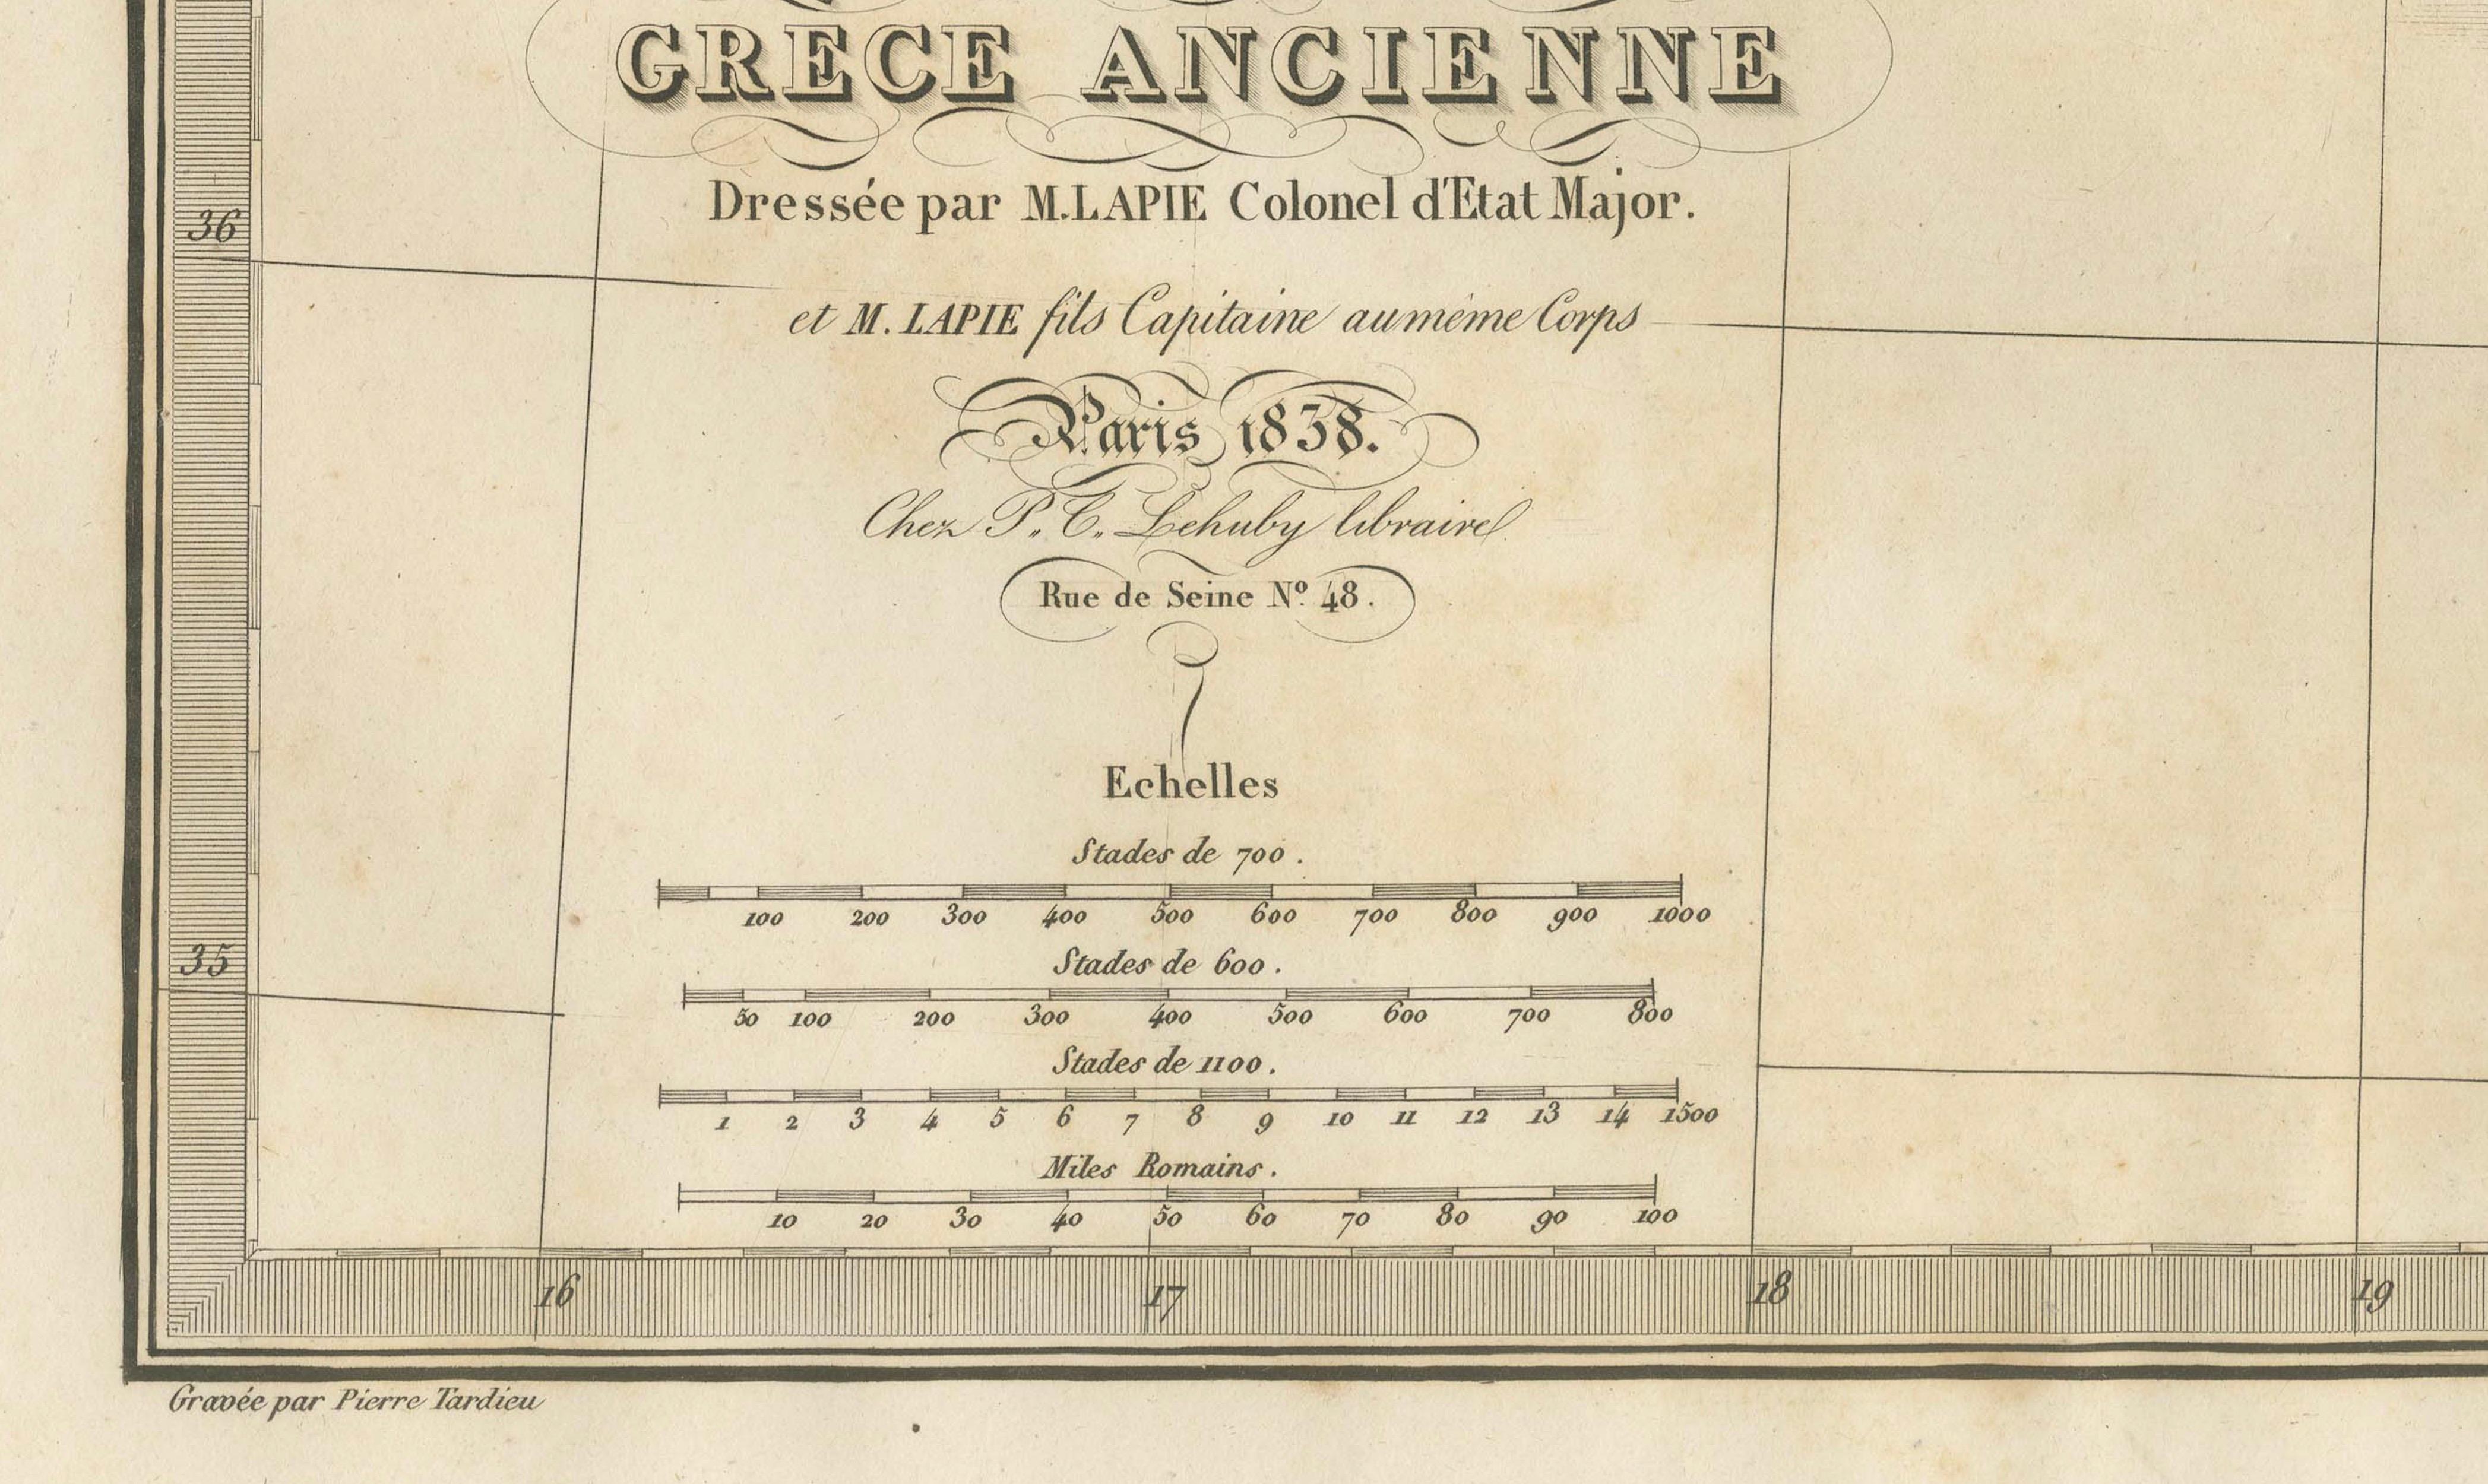 GRECE ANCIENNE
Dressée par M. LAPIE Colonel d'Etat Major.
36
et M. LAPIE fils Capitaine au même Corps
Paris 1838.
Chez P. C. Lehuby libraire
Rue de Seine Nº 48.
Echelles
Stades de 700.
100 200 300 400 500 600 700 800 900 1000
35
Stades de 600.
50 100 200 300 400 500 600 700 800
Stades de 1100.
1 2 3 4 5 6 7 8 9 10 11 12 13 14 1500
Miles Romains.
10 20 30 40 50 60 70 80 90 100
16 17 18 19
Gravée par Pierre Tardieu